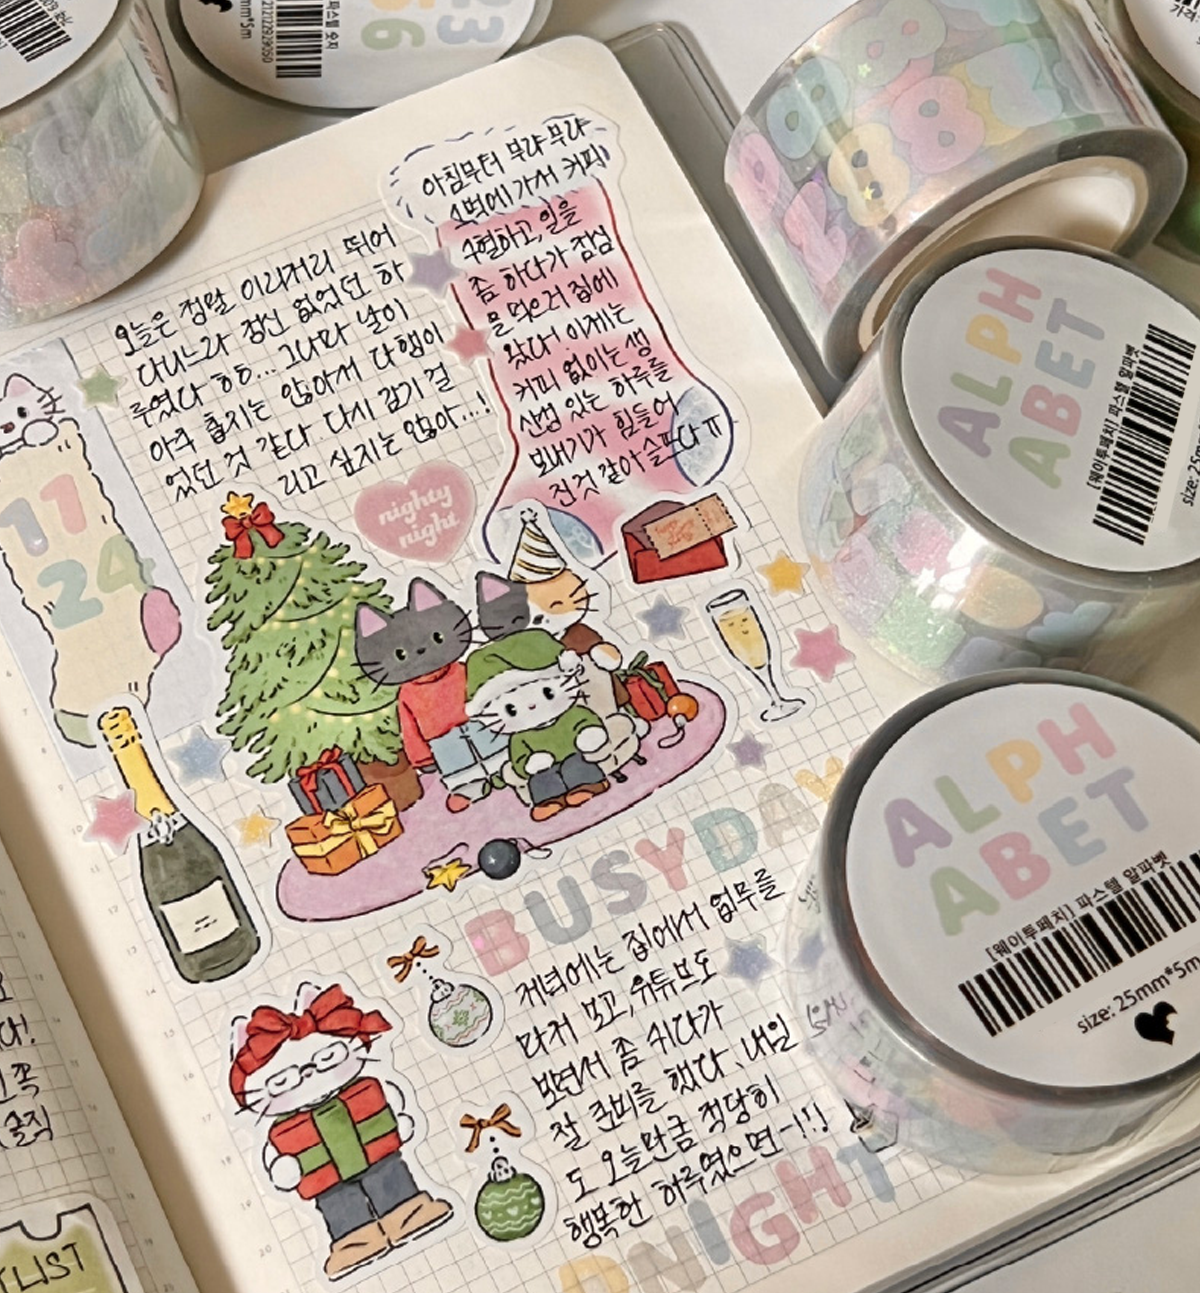 오늘은 정말 이리저리 뛰어
다니느라 정신 없었던 하
루였다 ㅎㅎ... 그나마 날이
아주 춥지는 않아서 다행이
었던 것 같다. 다시 감기 걸
리고 싶지는 않아...!
아침부터 부랴부랴
스벅에 가서 커피
수혈하고, 일을
좀 하다가 점심
을 먹으러 집에
왔다! 이제는
커피 없이는 생
산성 있는 하루를
보내기가 힘들어
진것 같아 슬프다 ㅠ
nighty
night
11
24
BUSYDAY
저녁에는 집에서 업무를
마저 보고, 유튜브도
보면서 좀 쉬다가
잘 준비를 했다. 내일
도 오늘만큼 적당히
행복한 하루였으면~!!
NIGHT
LIST
ALPH
ABET
[웨이투페치] 파스텔 알파벳
ALPH
ABET
[웨이투페치] 파스텔 알파벳
size: 25mm*5m
파스텔 숫자